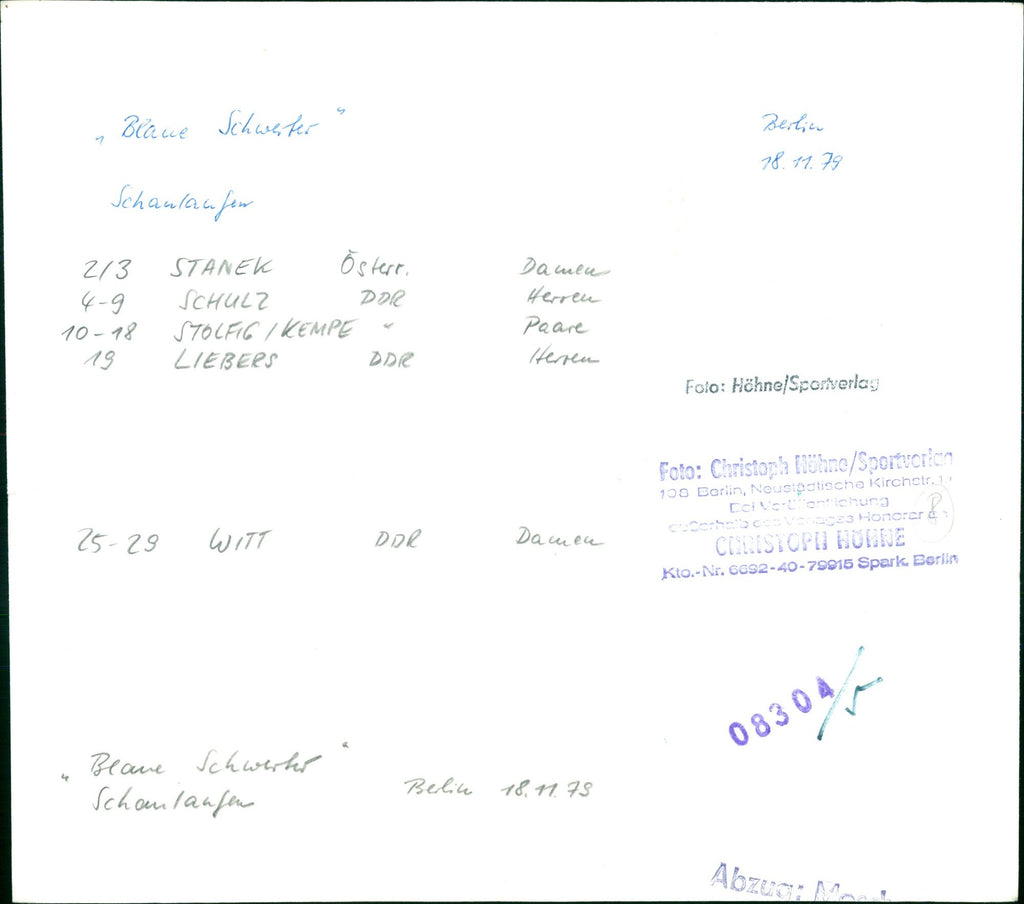 „Blaue Schwerter"
Berlin
18.11.79
Schaulaufen
2/3 STANEK Österr. Damen
4-9 SCHULZ DDR Herren
10-18 STOLFIG/KEMPE " Paare
19 LIEBERS DDR Herren
Foto: Höhne/Sportverlag
Foto: Christoph Höhne/Sportverlag
108 Berlin, Neustädtische Kirchstr.
Bei Veröffentlichung
außerhalb des Verlages Honorar an
CHRISTOPH HÖHNE
Kto.-Nr. 6692-40-79915 Spark. Berlin
25-29 WITT DDR Damen
08304/5
„Blaue Schwerter"
Schaulaufen Berlin 18.11.79
Abzug: